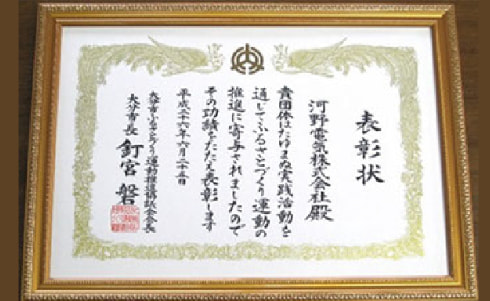 表彰状
河野電気株式会社殿
貴団体はたゆまぬ実践活動を
通じてふるさとづくり運動の
推進に寄与されましたので
その功績をたたえ表彰します
平成二十六年六月二十五日
大分市ふるさとづくり運動推進協議会会長
大分市長 釘宮 磐